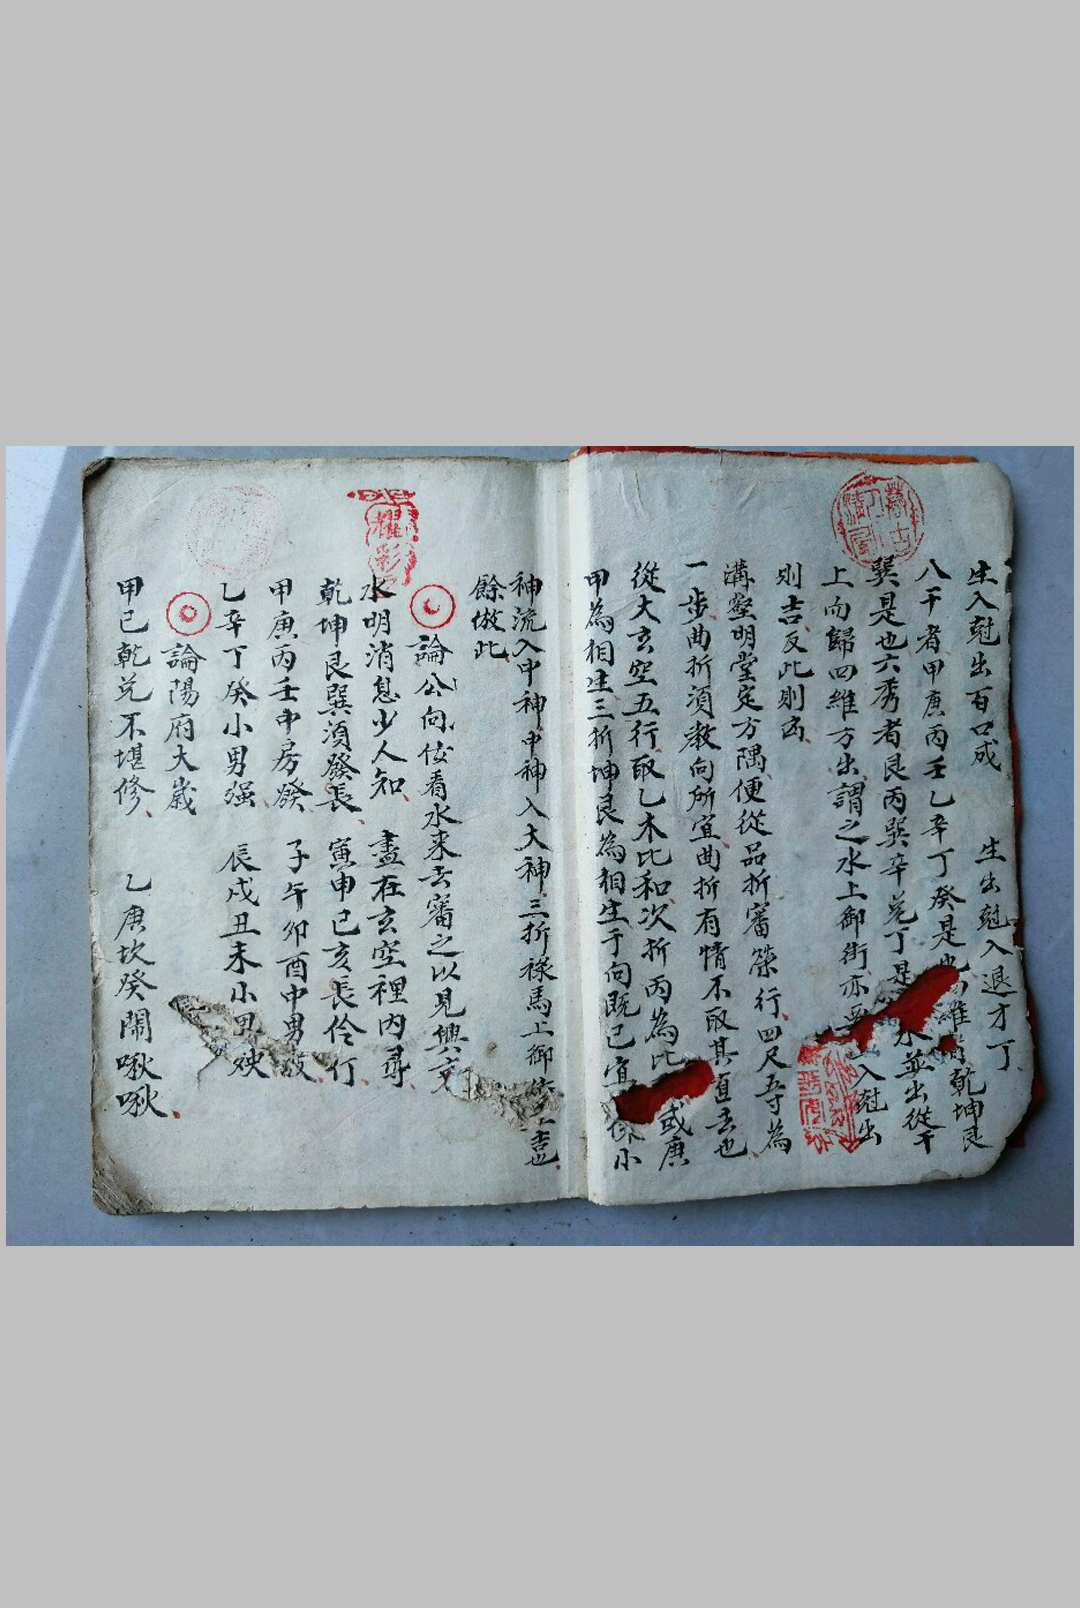 生入尅出百口成 生出尅入退才丁
八干者甲庚丙壬乙辛丁癸是也 維 乾坤艮
巽是也六秀者艮丙巽辛兌丁是 水並出從干
上而歸四維方出謂之水上御街亦 入尅出
則吉反此則凶
溝壑明堂定方隅便從品折審築行四尺五寸為
一步曲折須教向所宜曲折有情不取其直去也
從大玄空五行取乙木比和次折丙為比 或庚
甲為相生三折坤艮為相生于向既已宜 小
神流入中神中神入大神三折祿馬上御 吉也
餘倣此
論公向俊看水來去審之以見興
水明消息少人知 盡在玄空裡內尋
乾坤艮巽須發長 寅申巳亥長伶仃
甲庚丙壬中房發 子午卯酉中男
乙辛丁癸小男强 辰戌丑未小男殃
論陽府大歲
甲已乾兌不堪修 乙庚坎癸鬧啾啾
耀彩